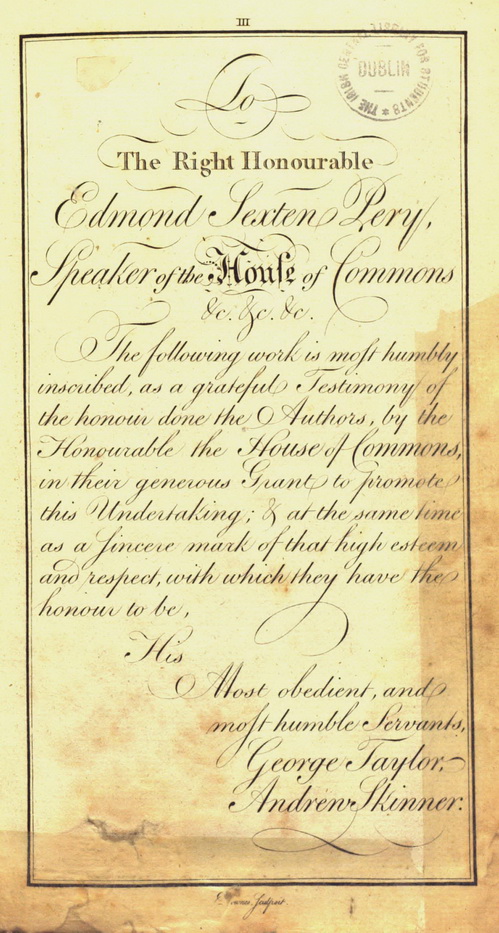 III
THE IRISH CENTRAL LIBRARY FOR STUDENTS *
DUBLIN
To
The Right Honourable
Edmond Sexten Pery,
Speaker of the Houſe of Commons
&c. &c. &c.
The following work is moſt humbly
inscribed, as a grateful Testimony of
the honour done the Authors, by the
Honourable the House of Commons,
in their generous Grant to promote
this Undertaking; & at the same time
as a ſincere mark of that high esteem
and respect, with which they have the
honour to be,
His
Most obedient, and
moſt humble Servants,
George Taylor,
Andrew Skinner.
Sculpsit